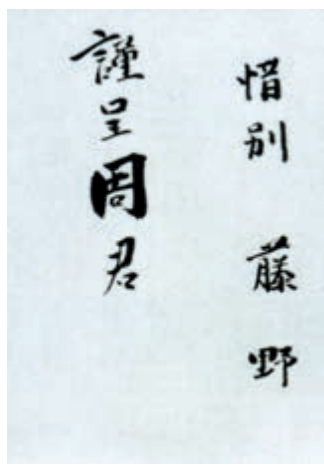 惜别 藤野
謹呈周君